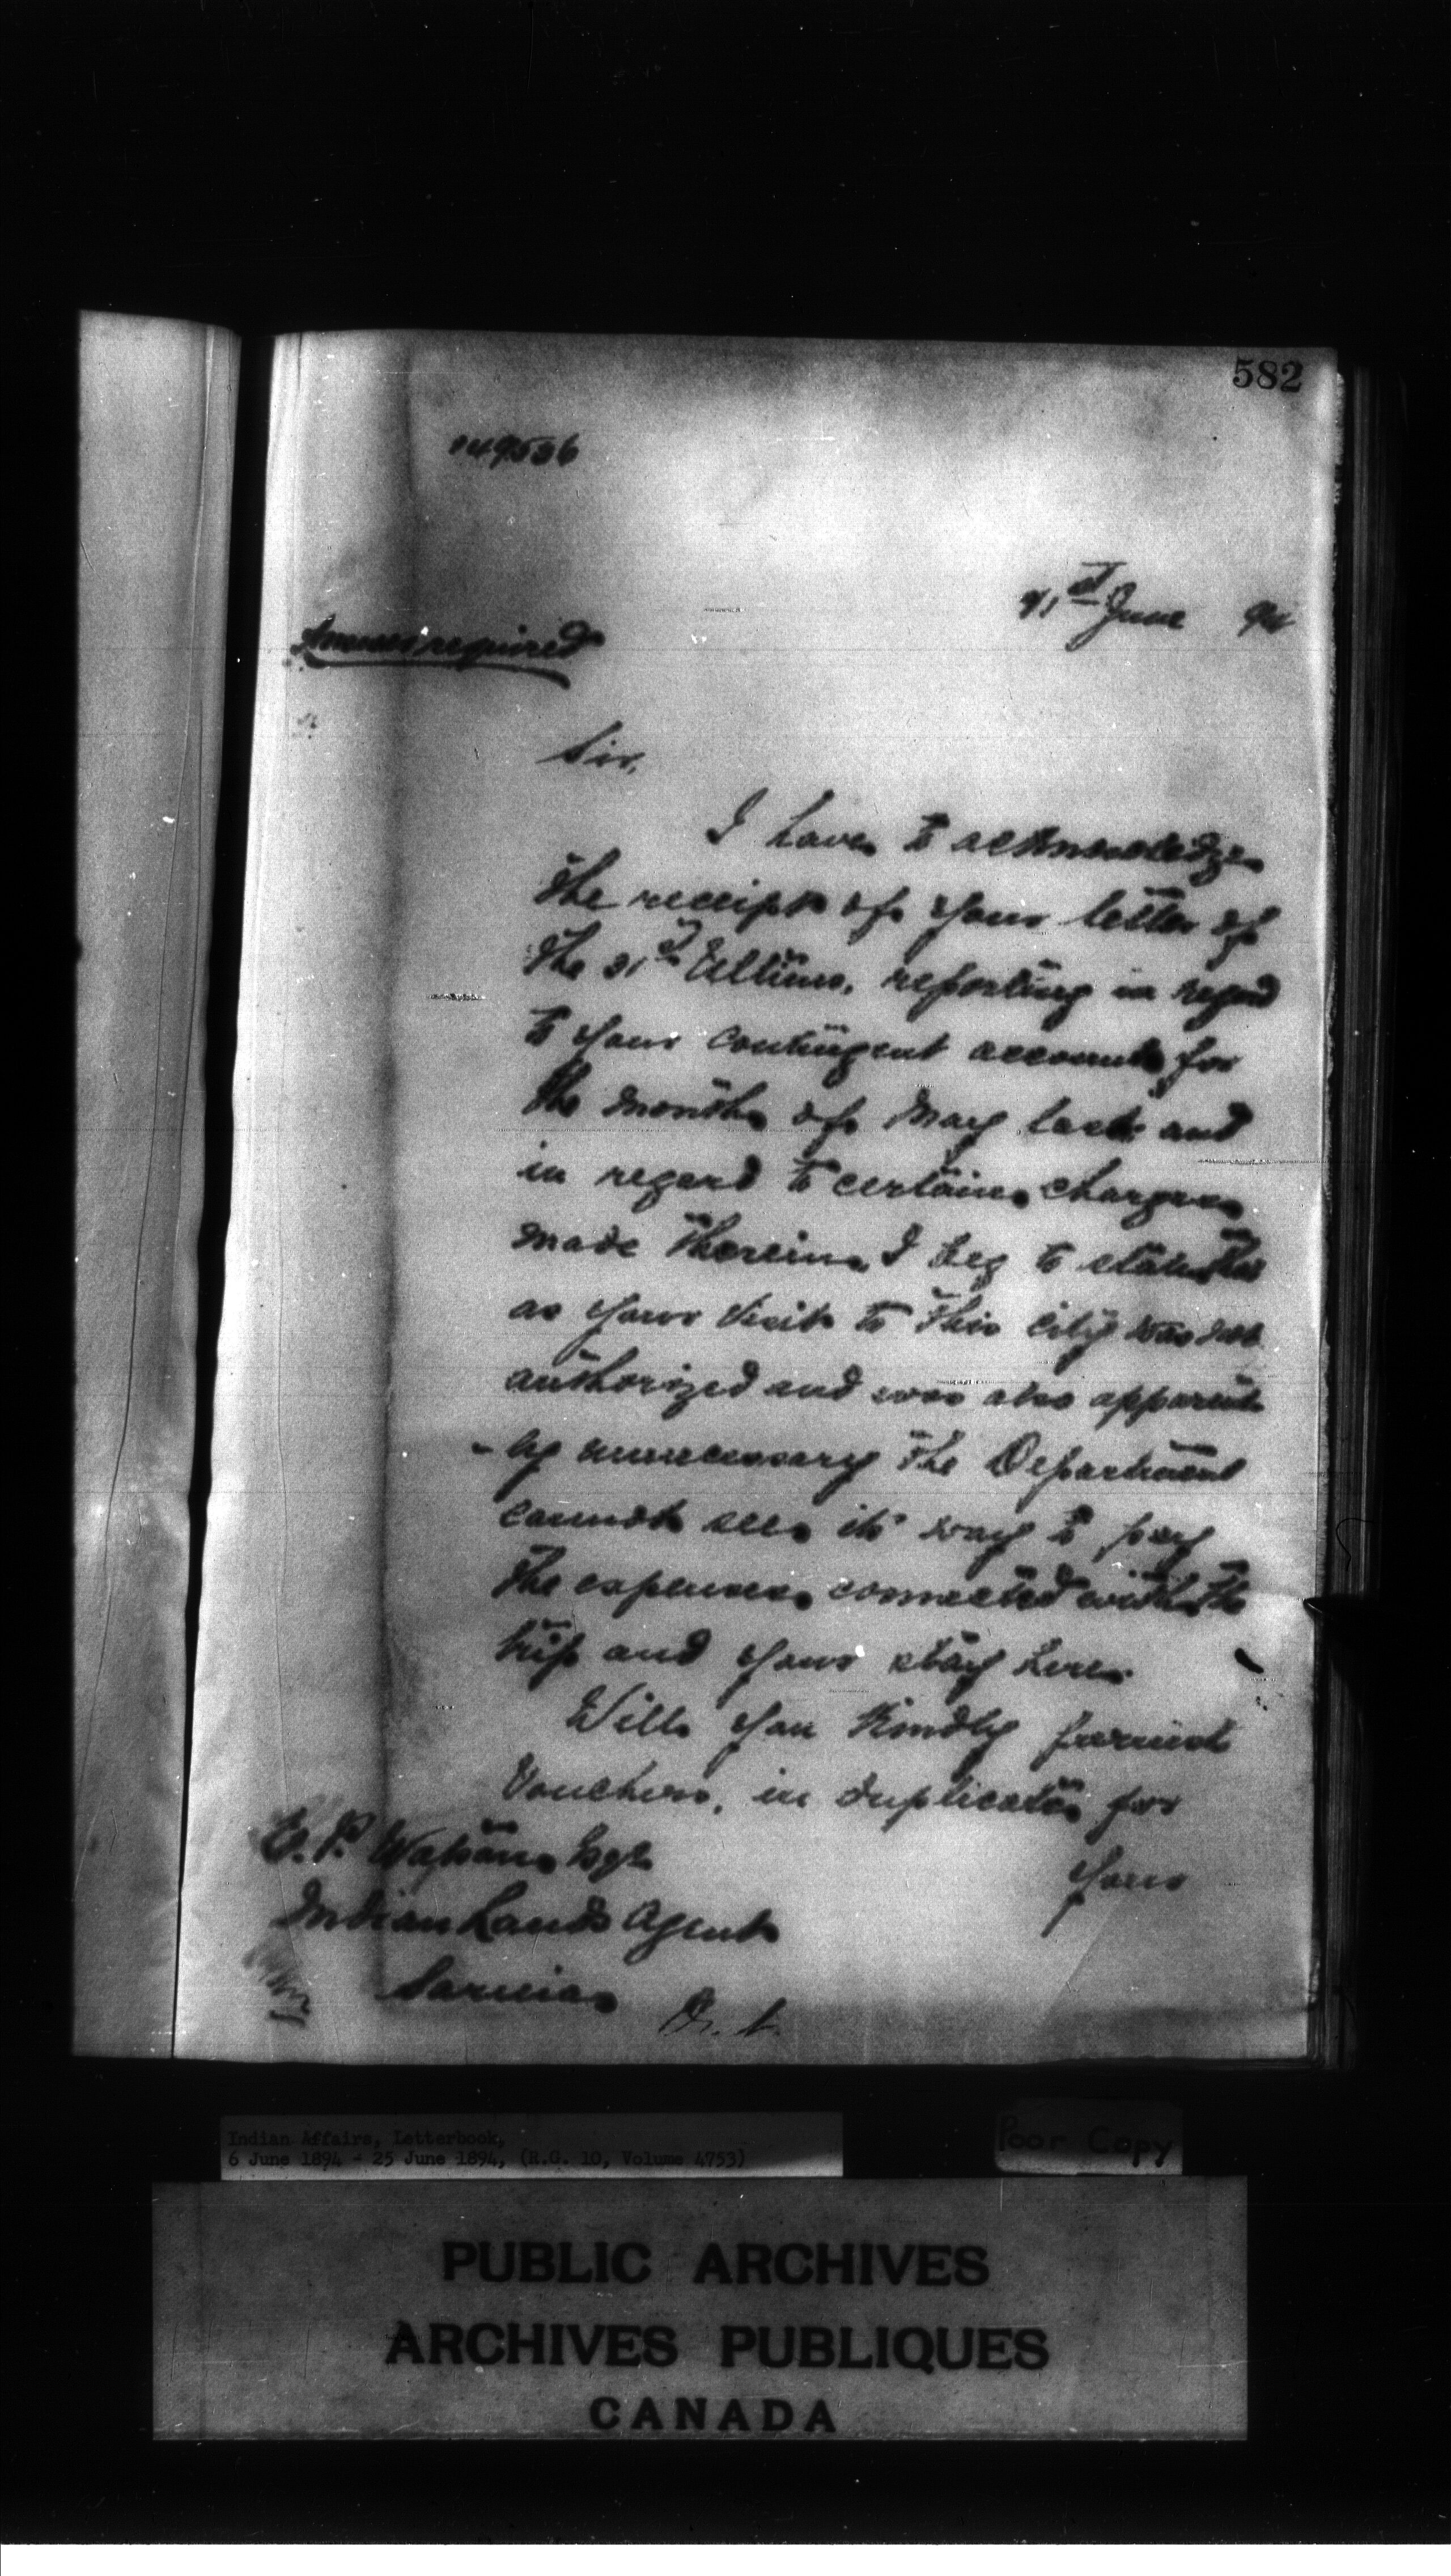 582
149536
21st June 94
Answer required
Sir,
I have to acknowledge
the receipt of your letter of
the 31st Ultimo, reporting in regard
to your contingent account for
the month of May last and
in regard to certain charges
made therein, I beg to state that
as your visit to this city was not
authorized and was also apparent
-ly unnecessary the Department
cannot see its way to pay
the expenses connected with the
trip and your stay here.
Will you kindly furnish
Vouchers, in duplicate for
your
E. P. Watson Esqr
Indian Lands Agent
Sarnia
Ont.
Indian Affairs, Letterbook,
6 June 1894 - 25 June 1894, (R.G. 10, Volume 4753)
Poor Copy
PUBLIC ARCHIVES
ARCHIVES PUBLIQUES
CANADA